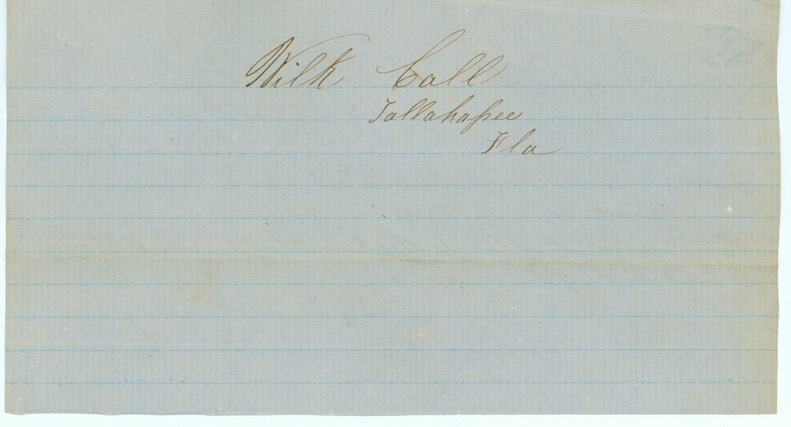 Wilk Call
Tallahassee
Fla